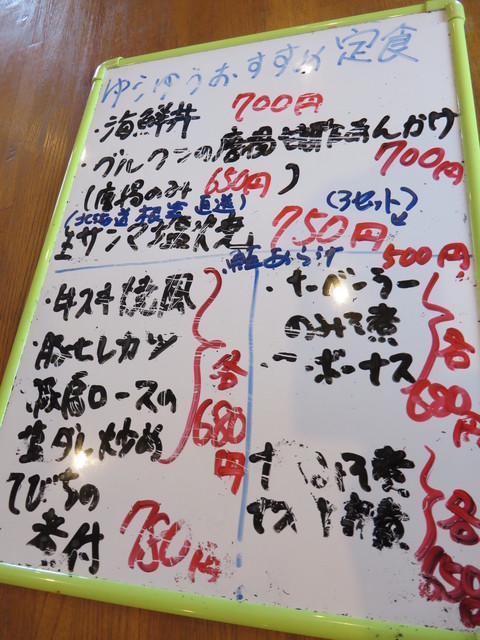 ゆうゆうおすすめ定食
・海鮮丼 700円
・グルクンの唐揚 あんかけ 700円
(唐揚のみ 650円)
(北海道 直送)
生サンマ塩焼 750円
(3セット)
500円
・牛スキ焼風
・豚ヒレカツ
・豚肩ロースの
生ダレ炒め
各680円
てびちの
煮付 750円
・ナーベーラー
のみそ煮
ーボーナス
各680円
みそ煮
各
150円